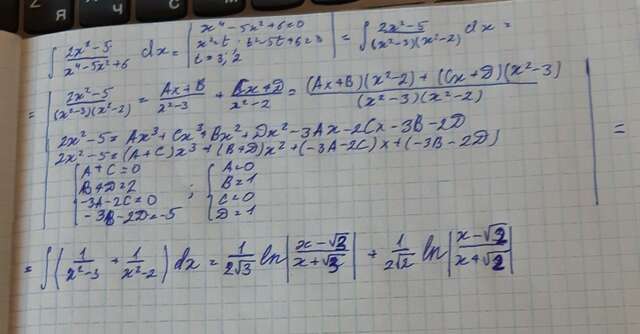 ∫ (2x²-5)/(x⁴-5x²+6) dx = | x⁴-5x²+6=0 x²=t; t²-5t+6=0 t=3; 2 | = ∫ (2x²-5)/((x²-3)(x²-2)) dx =
= | (2x²-5)/((x²-3)(x²-2)) = (Ax+B)/(x²-3) + (Cx+D)/(x²-2) = ((Ax+B)(x²-2)+(Cx+D)(x²-3))/((x²-3)(x²-2))
2x²-5=Ax³+Cx³+Bx²+Dx²-3Ax-2Cx-3B-2D
2x²-5=(A+C)x³+(B+D)x²+(-3A-2C)x+(-3B-2D)
{ A+C=0 ; { A=0
B+D=2 B=1
-3A-2C=0 C=0
-3B-2D=-5 D=1 | =
= ∫ (1/(x²-3) + 1/(x²-2)) dx = 1/(2√3) ln |(x-√3)/(x+√3)| + 1/(2√2) ln |(x-√2)/(x+√2)|